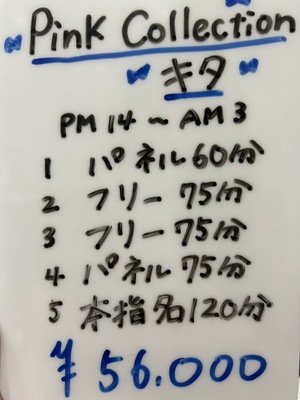 Pink Collection
キタ
PM 14 〜 AM 3
1 パネル 60分
2 フリー 75分
3 フリー 75分
4 パネル 75分
5 本指名 120分
¥56.000